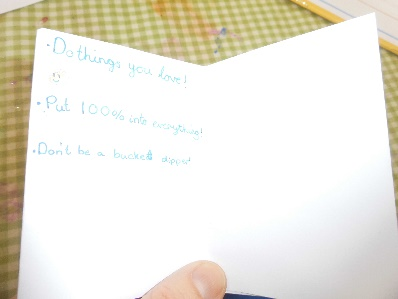 • Do things you love!
• Put 100% into everything!
• Don't be a bucket dipper